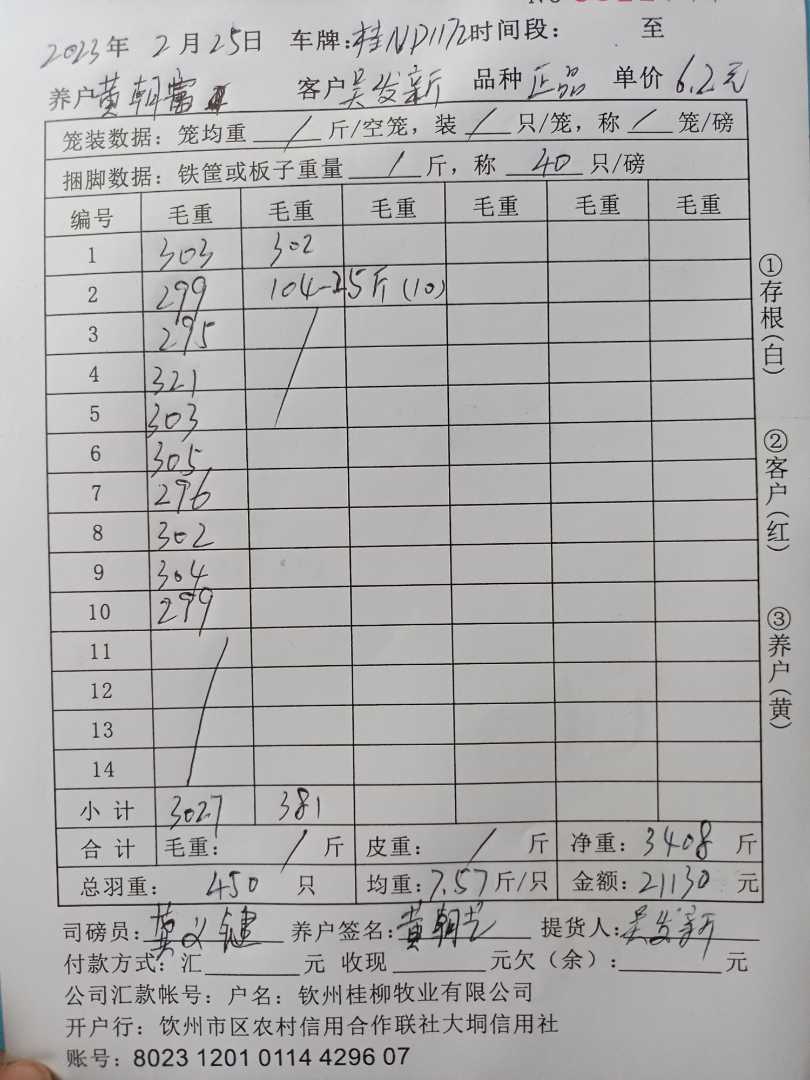 2023年 2月25日 车牌:桂ND1172时间段: 至
养户黄朝富 客户吴发新 品种 正品 单价 6.2元
笼装数据: 笼均重 / 斤/空笼, 装 / 只/笼, 称 / 笼/磅
捆脚数据: 铁筐或板子重量 / 斤, 称 40 只/磅
编号 毛重 毛重 毛重 毛重 毛重 毛重
1 303 302
2 299 104-25斤(10)
3 295
4 321
5 303
6 305
7 296
8 302
9 304
10 299
11
12
13
14
小计 3027 381
合计 毛重: / 斤 皮重: / 斤 净重: 3408 斤
总羽重: 450 只 均重: 7.57斤/只 金额: 21130 元
①存根(白)
②客户(红)
③养户(黄)
司磅员: 养户签名: 黄朝 提货人: 吴发新
付款方式: 汇 元 收现 元欠(余): 元
公司汇款帐号: 户名: 钦州桂柳牧业有限公司
开户行: 饮州市区农村信用合作联社大垌信用社
账号: 8023 1201 0114 4296 07